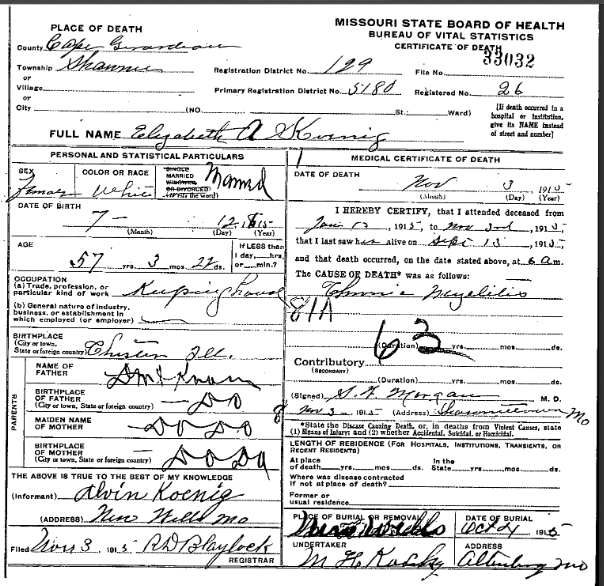 MISSOURI STATE BOARD OF HEALTH
BUREAU OF VITAL STATISTICS
CERTIFICATE OF DEATH
33032
PLACE OF DEATH
County Cape Girardeau
Township Shawnee
or
Village
or
City (NO. St.; Ward)
Registration District No. 129 File No.
Primary Registration District No. 5180 Registered No. 26
[If death occurred in a
hospital or institution,
give its NAME instead
of street and number]
FULL NAME Elizabeth A Koenig
PERSONAL AND STATISTICAL PARTICULARS
SEX
Female
COLOR OR RACE
White
SINGLE
MARRIED
WIDOWED
OR DIVORCED
(Write the word)
Married
DATE OF BIRTH
7 12
(Month) (Day) (Year)
AGE
57 yrs. 3 mos. 22 ds.
If LESS than
1 day, hrs.
or min.?
OCCUPATION
(a) Trade, profession, or
particular kind of work Keeping house
(b) General nature of industry,
business, or establishment in
which employed (or employer)
BIRTHPLACE
(City or town,
State or foreign country) Ill.
PARENTS
NAME OF
FATHER Dont Know
BIRTHPLACE
OF FATHER
(City or town, State or foreign country) Do
MAIDEN NAME
OF MOTHER Do Do
BIRTHPLACE
OF MOTHER
(City or town, State or foreign country) Do Do
THE ABOVE IS TRUE TO THE BEST OF MY KNOWLEDGE
(Informant) Alvin Koenig
(ADDRESS) New Wells Mo
Filed Nov 3, 1915 R D Blaylock
REGISTRAR
MEDICAL CERTIFICATE OF DEATH
DATE OF DEATH
Nov 3, 1915
(Month) (Day) (Year)
I HEREBY CERTIFY, that I attended deceased from
1915, to Nov 3rd, 1915,
that I last saw h alive on Sept 13, 1915,
and that death occurred, on the date stated above, at 6 a m.
The CAUSE OF DEATH* was as follows:
Chronic Myelitis
81A
63
(Duration) yrs. mos. ds.
Contributory
(SECONDARY)
(Duration) yrs. mos. ds.
(Signed) Morgan M. D.
Nov 3, 1915 (Address) Shawneetown Mo
*State the Disease Causing Death, or, in deaths from Violent Causes, state
(1) Means of Injury; and (2) whether Accidental, Suicidal, or Homicidal.
LENGTH OF RESIDENCE (For Hospitals, Institutions, Transients, or
Recent Residents)
At place
of death yrs. mos. ds.
In the
State yrs. mos. ds.
Where was disease contracted
if not at place of death?
Former or
usual residence
PLACE OF BURIAL OR REMOVAL
New Wells
DATE OF BURIAL
1915
UNDERTAKER
ADDRESS
Altenburg Mo